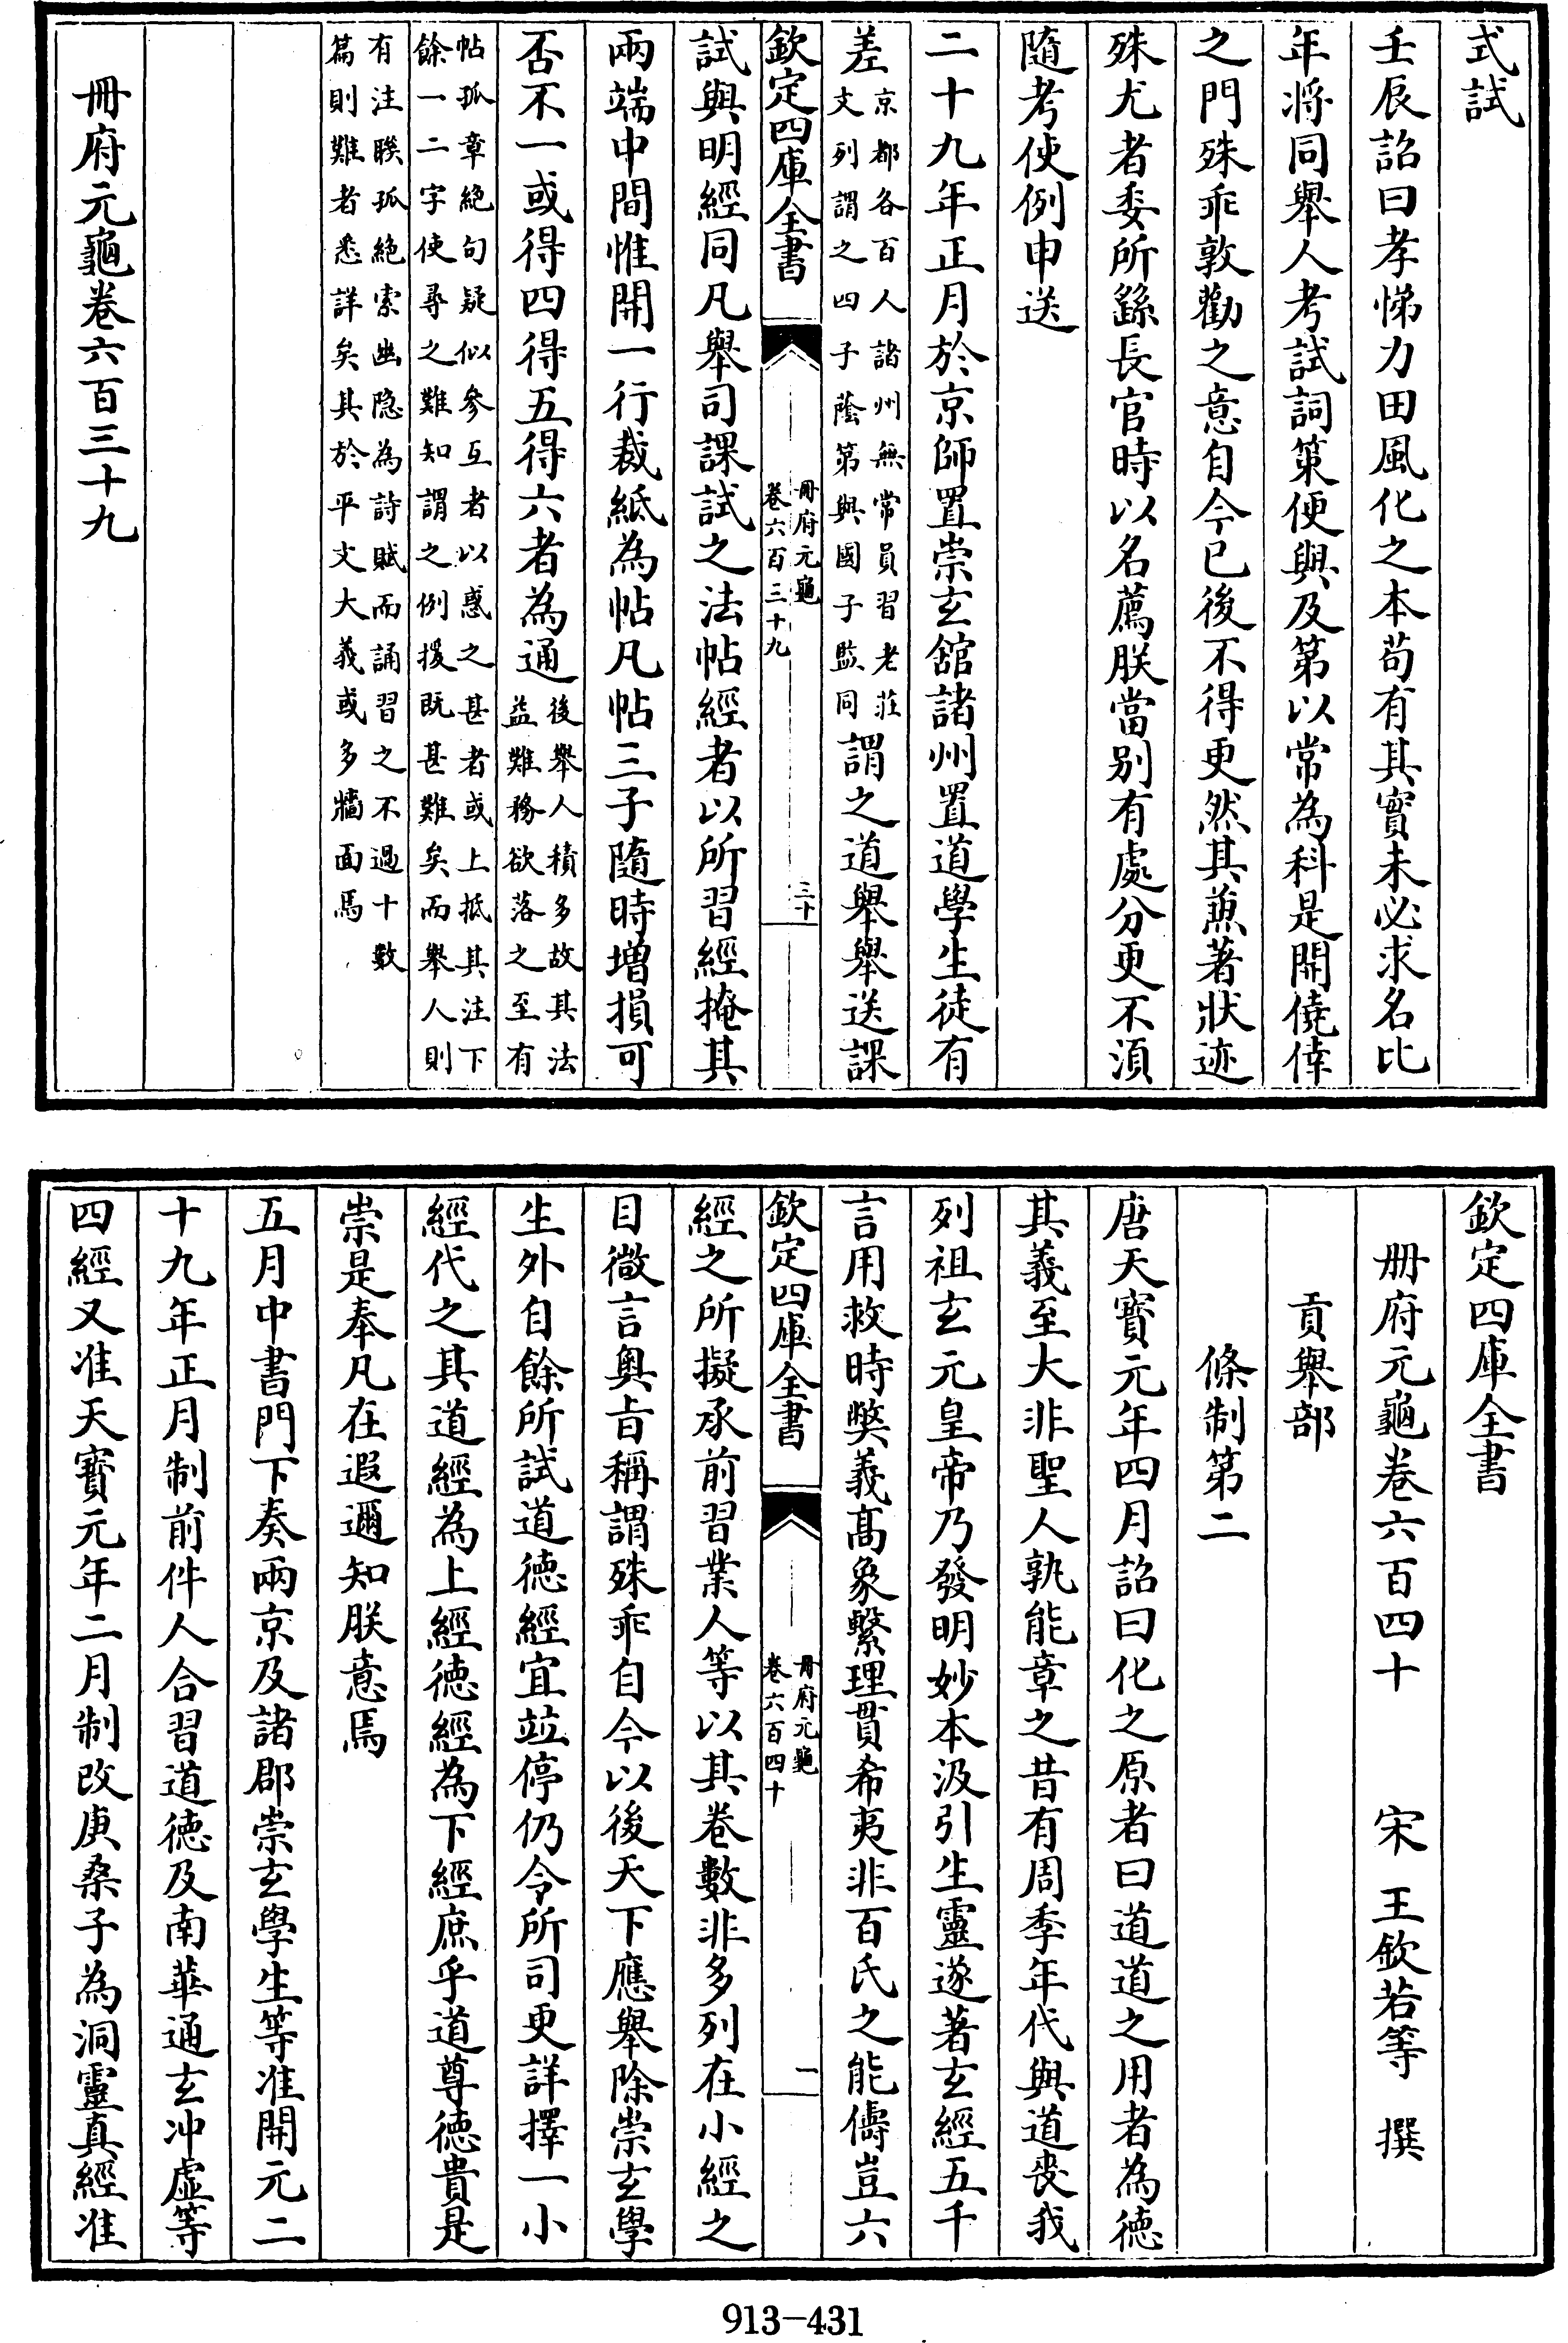 式試
壬辰詔曰孝悌力田風化之本苟有其實未必求名比
年将同舉人考試詞策便與及第以常為科是開僥倖
之門殊乖敦勸之意自今已後不得更然其蕉著狀迹
殊尤者委所繇長官時以名薦朕當别有處分更不須
隨考使例申送
二十九年正月於京師置崇玄舘諸州置道學生徒有
差京都各百人諸州無常員習老莊文列謂之四子蔭第與國子監同謂之道舉舉送課
欽定四庫全書
冊府元龜
卷六百三十九
三十
試與明經同凡舉司課試之法帖經者以所習經掩其
兩端中間惟開一行裁紙為帖凡帖三子隨時增損可
否不一或得四得五得六者為通後舉人積多故其法益難務欲落之至有
帖孤章絶句疑似參互者以惑之甚者或上抵其注下餘一二字使尋之難知謂之例援既甚難矣而舉人則
有注睽孤絶索幽隐為詩賦而誦習之不過十數篇則難者悉詳矣其於平文大義或多牆面焉
冊府元龜卷六百三十九
欽定四庫全書
册府元龜卷六百四十　宋　王欽若等　撰
貢舉部
條制第二
唐天寳元年四月詔曰化之原者曰道道之用者為徳
其義至大非聖人孰能章之昔有周季年代與道喪我
列祖玄元皇帝乃發明妙本汲引生靈遂著玄經五千
言用救時獘義髙象繋理貫希夷非百氏之能儔豈六
欽定四庫全書
冊府元龜
卷六百四十
一
經之所擬承前習業人等以其卷數非多列在小經之
目微言奥㫖稱謂殊乖自今以後天下應舉除崇玄學
生外自餘所試道徳經宜竝停仍令所司更詳擇一小
經代之其道經為上經徳經為下經庶乎道尊徳貴是
崇是奉凡在遐邇知朕意焉
五月中書門下奏兩京及諸郡崇玄學生等准開元二
十九年正月制前件人合習道徳及南華通玄冲虚等
四經又准天寳元年二月制改庚桑子為洞靈真經准
913-431